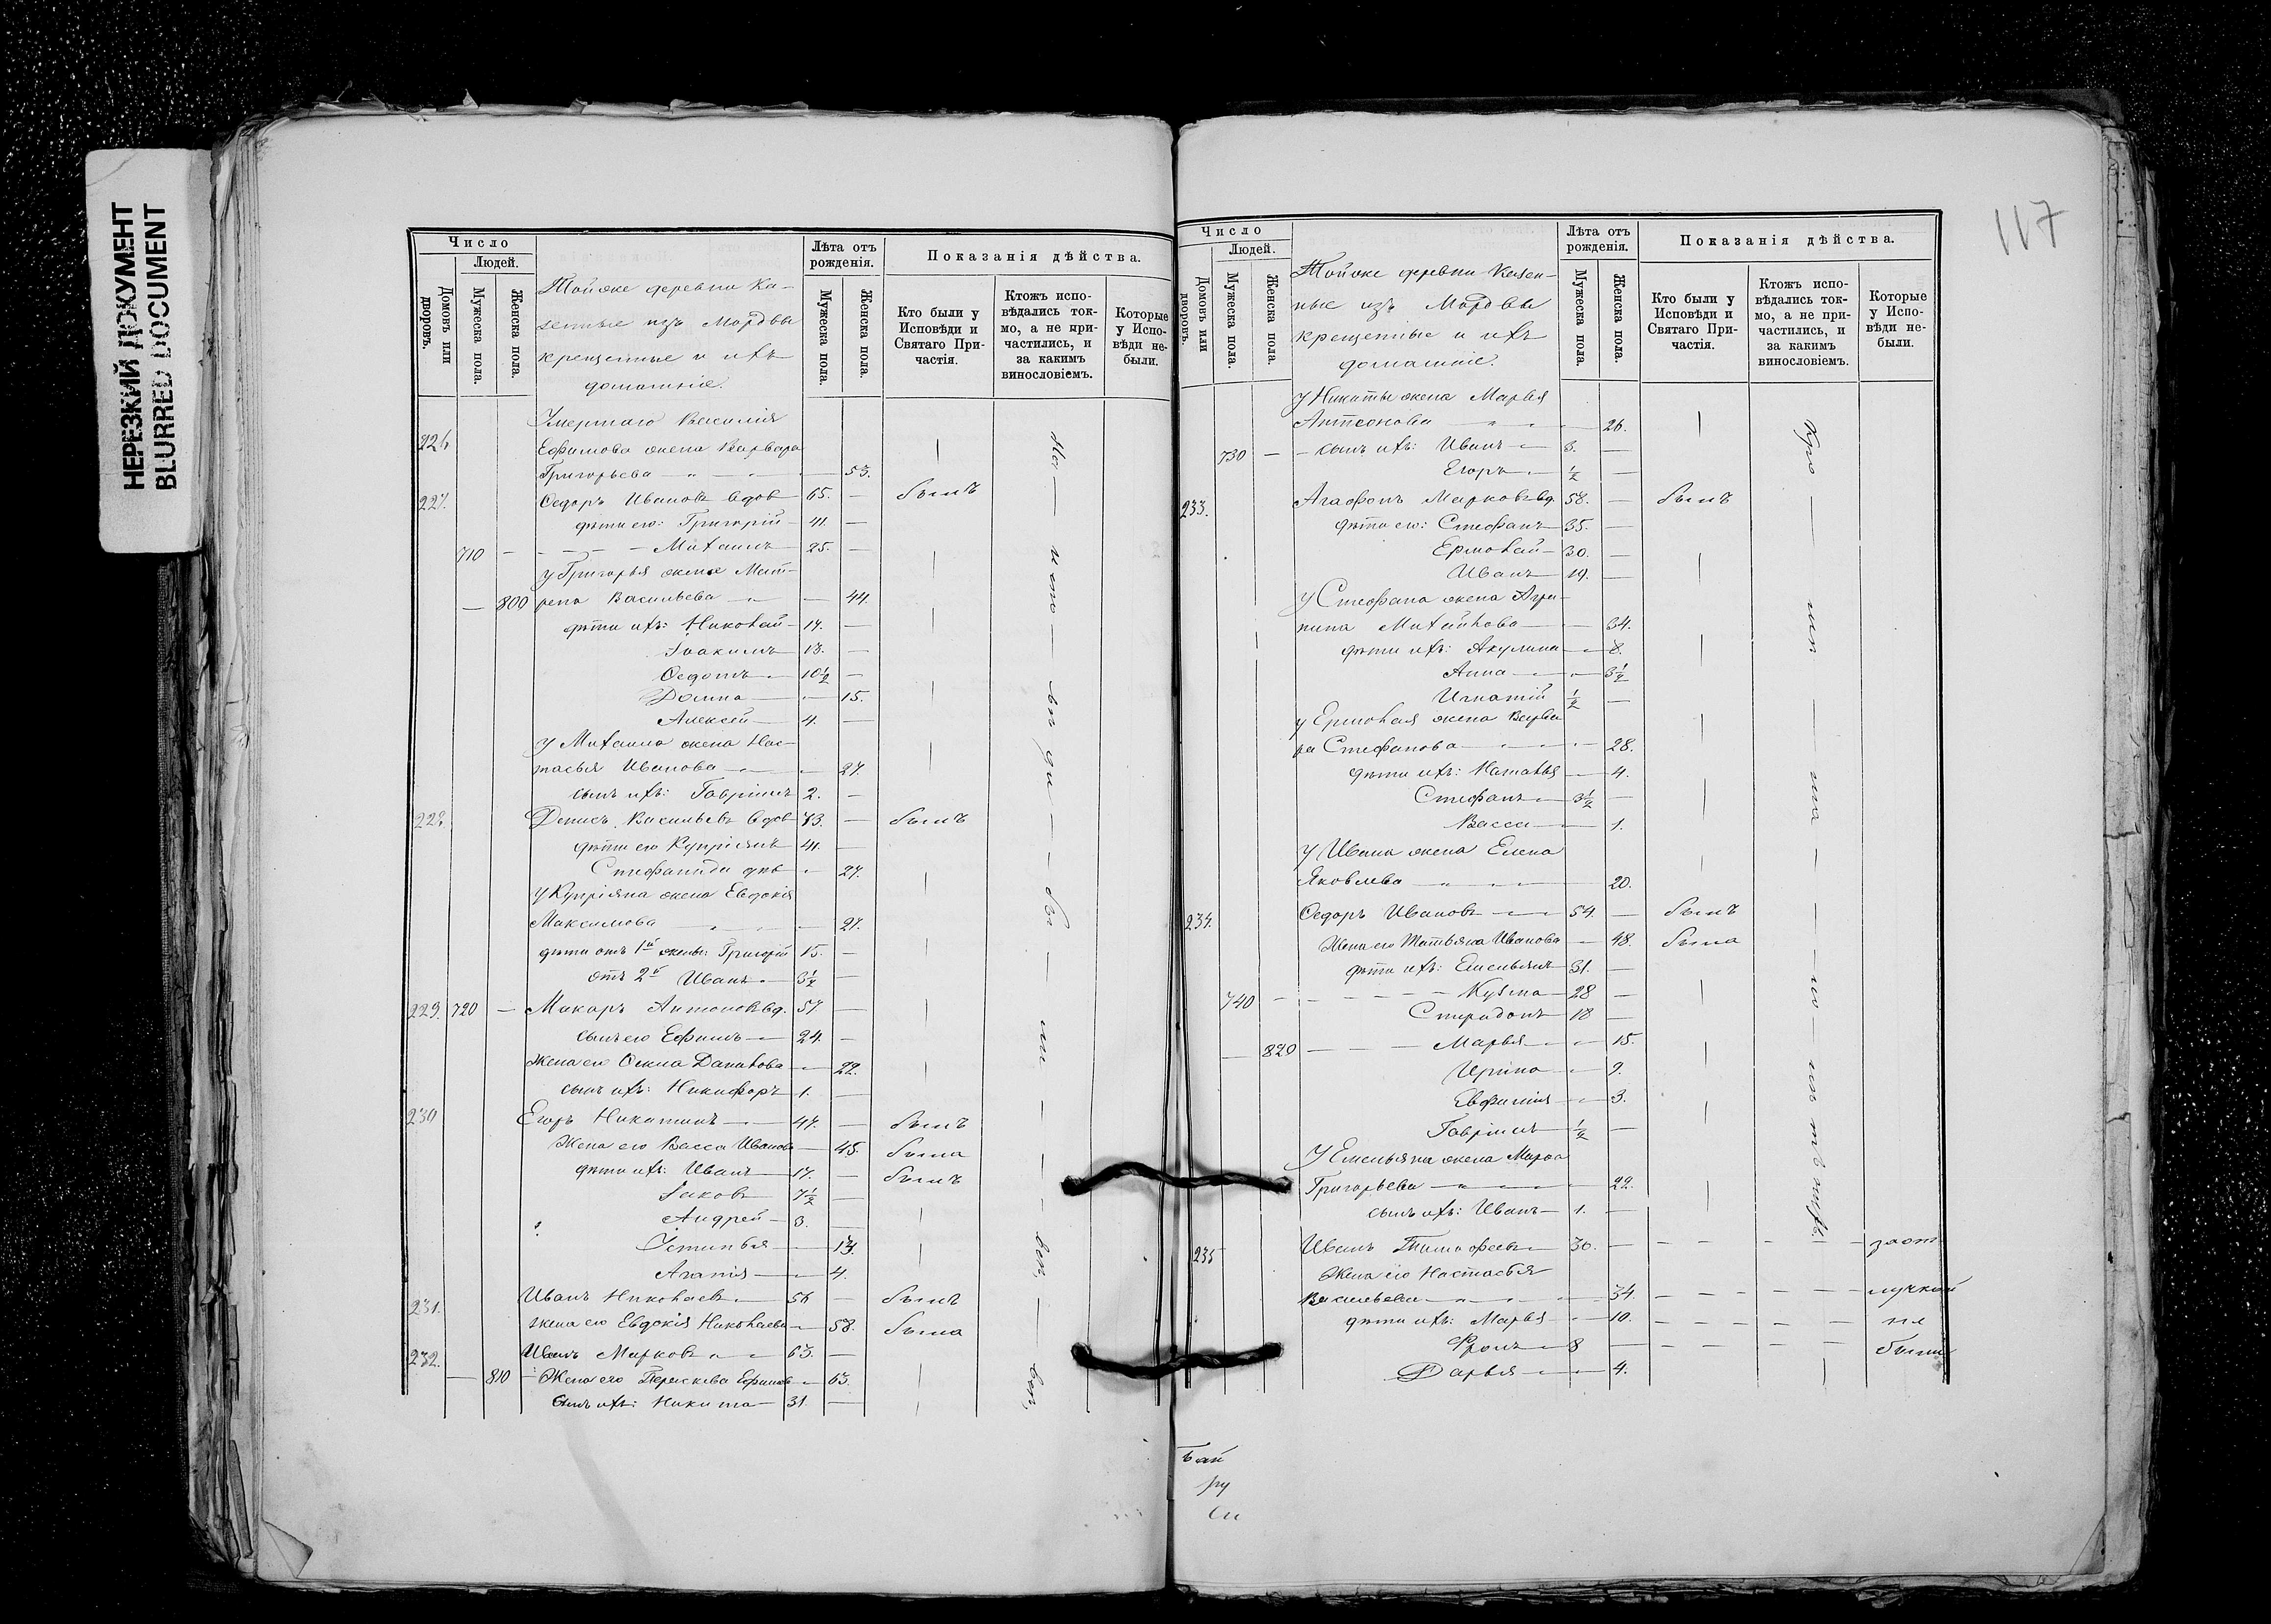 НЕРЕЗКИЙ ДОКУМЕНТ
BLURRED DOCUMENT
Число
Домовъ или дворовъ.
Людей.
Мужеска пола.
Женска пола.
Тойже деревни Ка-
зенные изъ Мордвы
крещенные и ихъ
домашніе.
Лѣта отъ рожденія.
Мужеска пола.
Женска пола.
Показанія дѣйства.
Кто были у Исповѣди и Святаго При-частія.
Ктожъ испо-вѣдались ток-мо, а не при-частились, и за какимъ винословіемъ.
Которые у Испо-вѣди не-были.
Умершаго Василія
226 Ефимова жена Варвара
Григорьева — 53.
227. Ѳедоръ Ивановъ вдов 65. — былъ
дѣти его: Григорій — 41. —
710 — Михаилъ — 25. —
у Григорья жена Мат-
— 800 рена Васильева — 44.
дѣти ихъ: Николай — 17. —
Іоакимъ 13. —
Ѳедотъ — 10½ —
Домна — 15.
Алексей — 4. —
у Михаила жена Нас-
тасья Иванова — 27.
сынъ ихъ: Гавріилъ 2. —
228. Денисъ Васильевъ вдов 73. — былъ
дѣти его Купріянъ 41. —
Стефанида дѣв — 27.
у Купріяна жена Евдокія
Максимова — 27.
дѣти отъ 1й жены: Григорій 15. —
отъ 2й Иванъ — 3½ —
229. 720 — Макаръ Антоновъ вд. 57. —
сынъ его Ефимъ — 24. —
Жена его Ѳекла Данилова — 22.
сынъ ихъ: Никифоръ 1. —
230 Егоръ Никитинъ — 47. — былъ
Жена его Васса Иванова — 45. была
дѣти ихъ: Иванъ — 17. — былъ
Іаковъ 7½ —
Андрей — 3. —
Устинья — 13.
Агапія — 4.
231. Иванъ Николаевъ — 56 — былъ
жена его Евдокія Николаева — 58. была
232. Иванъ Марковъ — 63. —
— 810 — Жена его Параскева Ефимов — 63.
сынъ ихъ: Никита — 31 —
117
Число
Домовъ или дворовъ.
Людей.
Мужеска пола.
Женска пола.
Тойже деревни Казен-
ные изъ Мордвы
крещенные и ихъ
домашніе.
Лѣта отъ рожденія.
Мужеска пола.
Женска пола.
Показанія дѣйства.
Кто были у Исповѣди и Святаго При-частія.
Ктожъ испо-вѣдались ток-мо, а не при-частились, и за какимъ винословіемъ.
Которые у Испо-вѣди не-были.
У Никиты жена Марья
Антонова — 26.
730 — сынъ ихъ: Иванъ — 3. —
Егоръ — ½ —
233. Агафонъ Марковъ вд. 58. — былъ
дѣти его: Стефанъ — 35. —
Ермолай — 30. —
Иванъ — 19. —
у Стефана жена Агри-
пина Михайлова — 34.
дѣти ихъ: Акулина — 8.
Анна — 3½
Игнатій ½ —
у Ермолая жена Варва
ра Стефанова — 28.
дѣти ихъ: Наталья — 4.
Стефанъ — 3½ —
Васса — 1.
у Ивана жена Елена
Яковлева — 20.
234. Ѳедоръ Ивановъ — 54. — былъ
Жена его Татьяна Иванова — 48. была
дѣти ихъ: Емельянъ 31. —
740 — Кузма — 28 —
Спиридонъ 18 —
— 820 — Марья — 15.
Ирина — 9.
Евфимія — 3.
Гавріилъ ½ —
У Емельяна жена Марѳа
Григорьева — 22.
сынъ ихъ: Иванъ — 1. —
235 Иванъ Тимофеевъ — 30. — за от
Жена его Настасья
Васильева — 34. — лучкой
дѣти ихъ: Марья — 10. — не
Фролъ — 8 — были
Дарья — 4.